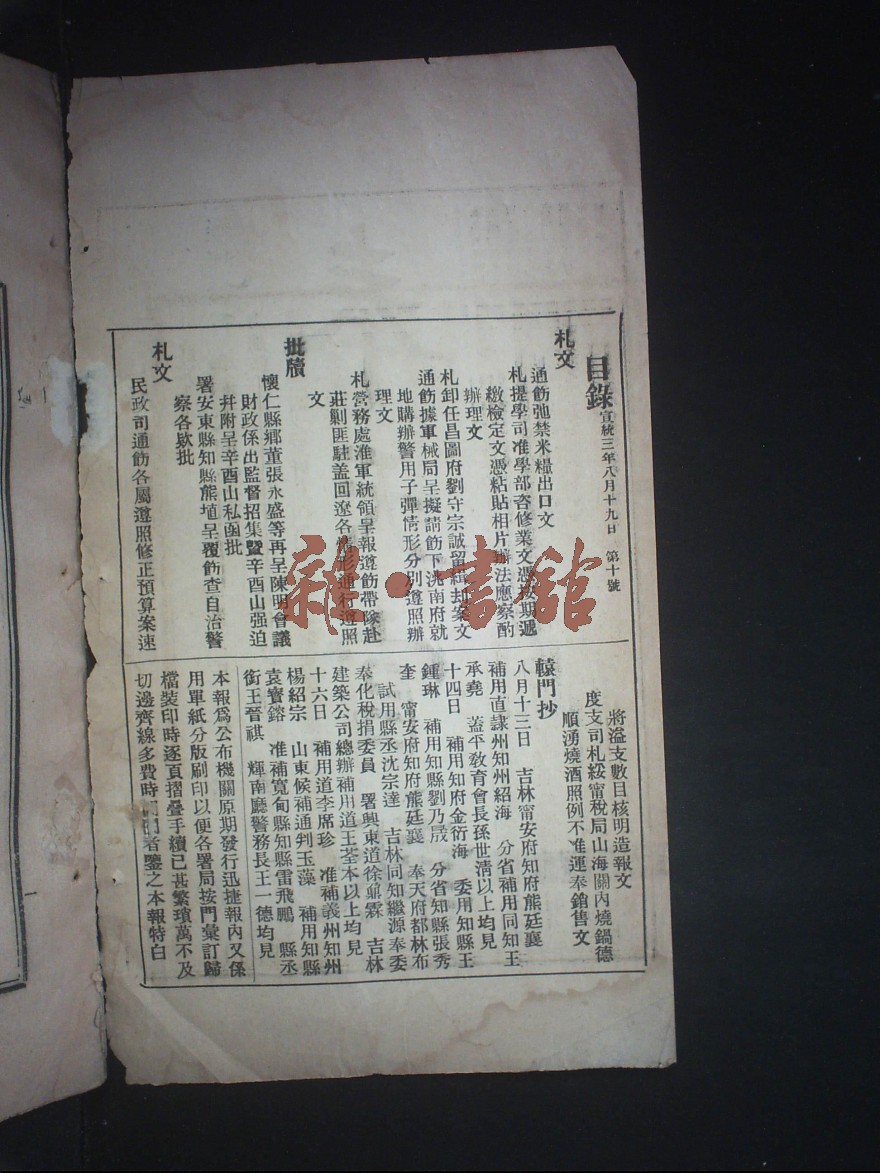 目錄 宣統三年八月十九日 第十號
札文
通飭弛禁米糧出口文
札提學司准學部咨修業文憑 期遞
繳檢定文憑粘貼相片辦法應察酌
辦理文
札卸任昌圖府劉守宗誠留緝劫案文
通飭據軍械局呈擬請飭下洮南府就
地購辦警用子彈情形分別遵照辦
理文
札營務處淮軍統領呈報遵飭帶隊赴
莊剿匪駐蓋回遼各情形通行遵照
文
批牘
懷仁縣鄉董張永盛等再呈陳明會議
財政係出監督招集暨辛酉山强迫
并附呈辛酉山私函批
署安東縣知縣熊埴呈覆飭查自治警
察各欵批
札文
民政司通飭各屬遵照修正預算案速
將溢支數目核明造報文
度支司札綏甯稅局山海關內燒鍋德
順湧燒酒照例不准運奉銷售文
轅門抄
八月十三日 吉林甯安府知府熊廷襄
補用直隸州知州紹海 分省補用同知王
承堯 蓋平敎育會長孫世淸以上均見
十四日 補用知府金衍海 委用知縣王
鍾琳 補用知縣劉乃晟 分省知縣張秀
奎 甯安府知府熊廷襄 奉天府都林布
試用縣丞沈宗達 吉林同知繼源奉委
奉化稅捐委員 署興東道徐鼐霖 吉林
建築公司總辦補用道王荃本以上均見
十六日 補用道李席珍 准補義州知州
楊紹宗 山東候補通判玉藻 補用知縣
袁寳鎔 准補寬甸縣知縣雷飛鵬 縣丞
銜王晉祺 輝南廳警務長王一德均見
本報爲公布機關原期發行迅捷報內又係
用單紙分版刷印以便各署局按門彙訂歸
檔裝印時逐頁摺疊手續已甚繁瑣萬不及
切邊齊線多費時 者鑒之本報特白
雜·書館